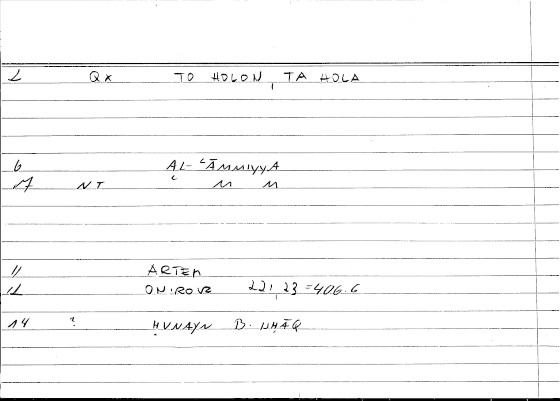 2 Qx TO HOLON, TA HOLA
6 AL-ʿĀMMIYYA
17 NT
11 ARTEM
12 ONIROVZ 221,23 = 406.6
14 ? ḤUNAYN B.